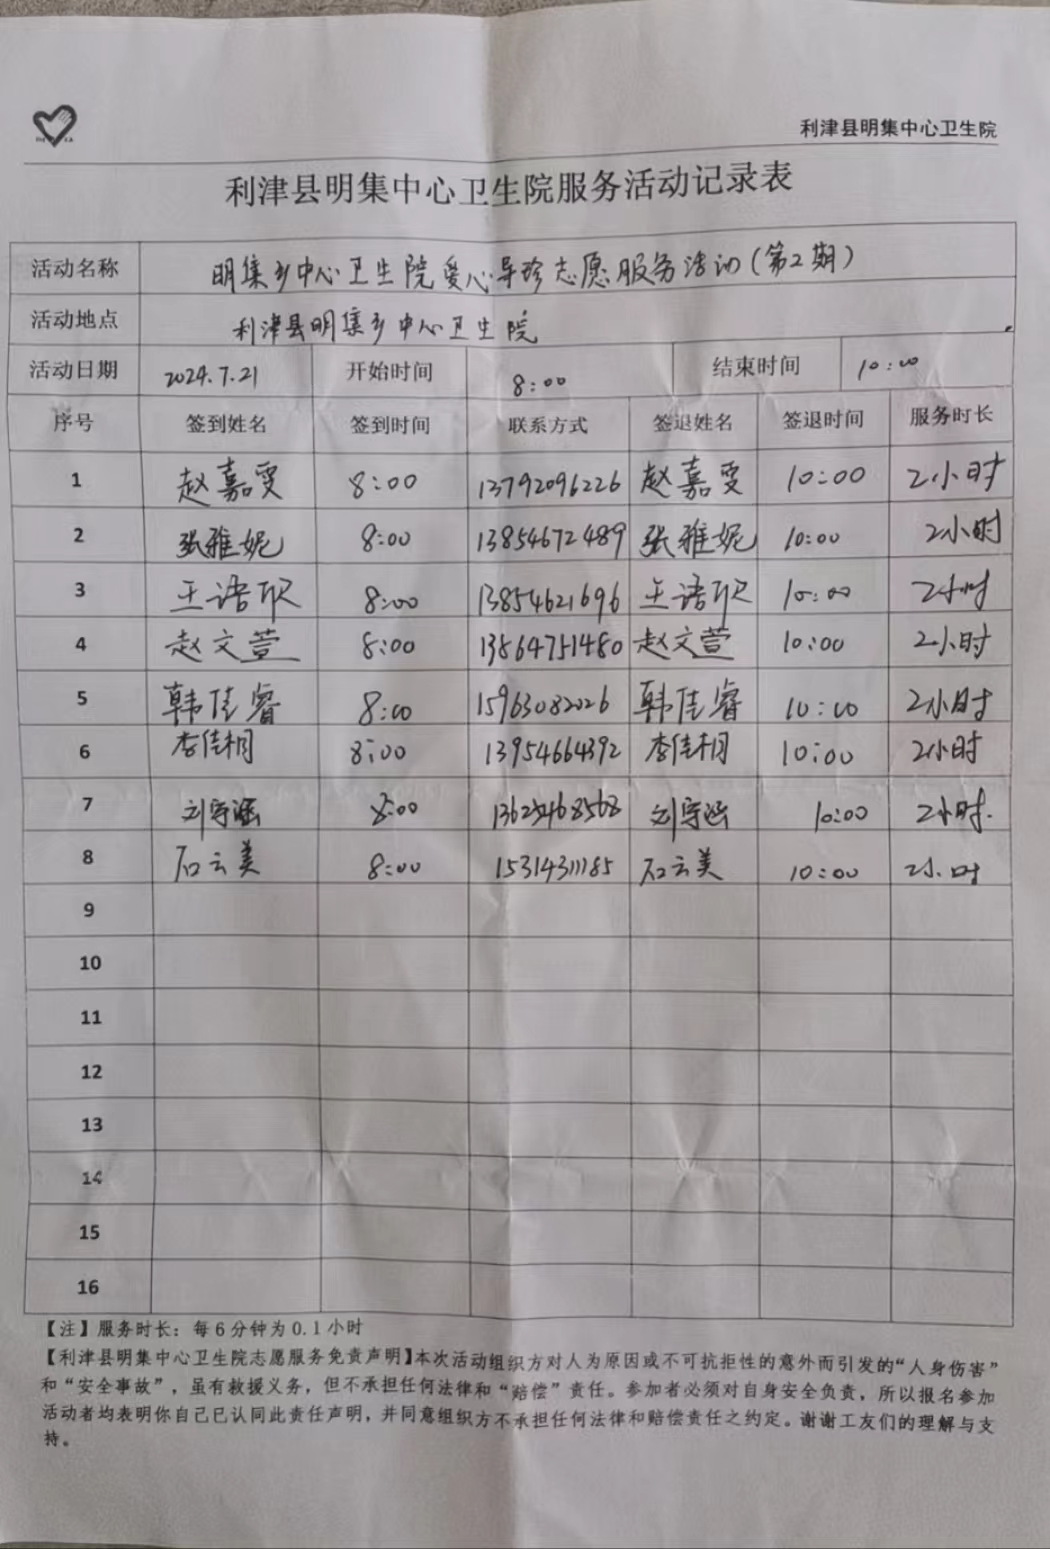 利津县明集中心卫生院
利津县明集中心卫生院服务活动记录表
活动名称 明集乡中心卫生院爱心导珍志愿服务活动(第2期)
活动地点 利津县明集乡中心卫生院
活动日期 2024.7.21 开始时间 8:00 结束时间 10:00
序号 签到姓名 签到时间 联系方式 签退姓名 签退时间 服务时长
1 赵嘉雯 8:00 13792096226 赵嘉雯 10:00 2小时
2 张雅妮 8:00 13854672489 张雅妮 10:00 2小时
3 王语 8:00 13854621696 王语 10:00 2小时
4 赵文萱 8:00 13864751480 赵文萱 10:00 2小时
5 韩佳睿 8:00 15963082026 韩佳睿 10:00 2小时
6 李佳桐 8:00 13954664392 李佳桐 10:00 2小时
7 刘宇涵 8:00 13625468568 刘宇涵 10:00 2小时.
8 石云美 8:00 15314311185 石云美 10:00 2小时
9
10
11
12
13
14
15
16
【注】服务时长：每6分钟为0.1小时
【利津县明集中心卫生院志愿服务免责声明】本次活动组织方对人为原因或不可抗拒性的意外而引发的“人身伤害”
和“安全事故”，虽有救援义务，但不承担任何法律和“赔偿”责任。参加者必须对自身安全负责，所以报名参加
活动者均表明你自己已认同此责任声明，并同意组织方不承担任何法律和赔偿责任之约定。谢谢工友们的理解与支
持。